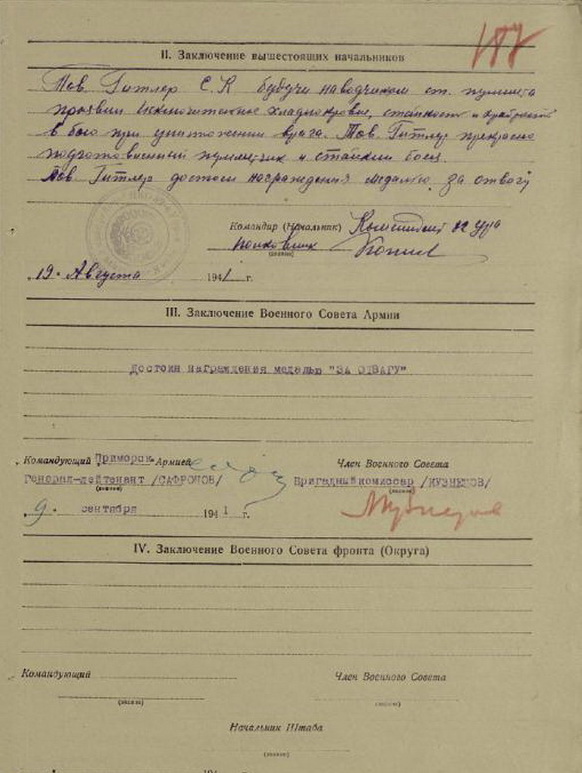 187
II. Заключение вышестоящих начальников
Тов. Гитлер С.К будучи наводчиком ст. пулемета
проявил исключительное хладнокровие, стойкость и храбрость
в бою при уничтожении врага. Тов. Гитлер прекрасно
подготовленный пулеметчик и стойкий боец.
Тов. Гитлер достоен награждения медалью за отвагу
Командир (Начальник) Комендант УРа
полковник
(звание)
19. Августа 1941 г.
III. Заключение Военного Совета Армии
Достоин награждения медалью "ЗА ОТВАГУ"
Командующий Приморск. Армией
Член Военного Совета
Генерал-лейтенант /САФРОНОВ/
Бригадный комиссар /КУЗНЕЦОВ/
(звание)
(звание)
9. сентября 1941 г.
Кузнецов
IV. Заключение Военного Совета фронта (Округа)
Командующий
Член Военного Совета
(звание)
(звание)
Начальник Штаба
(звание)